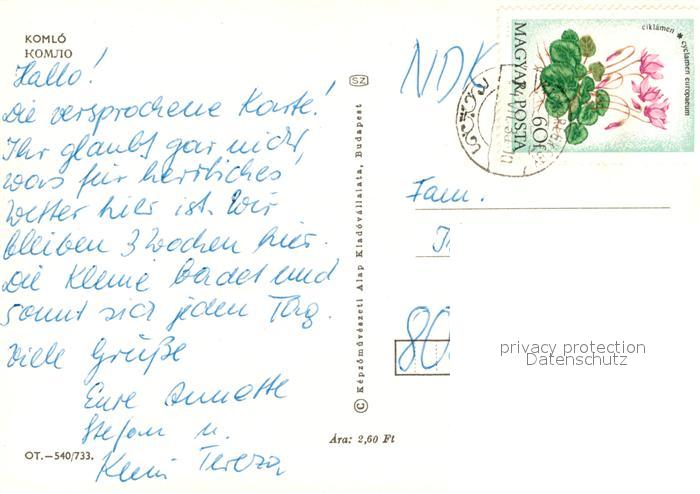 KOMLÓ
КОМЛО
Hallo!
Die versprochene Karte!
Ihr glaubt gar nicht,
was für herrliches
Wetter hier ist. Wir
bleiben 3 Wochen hier.
Die Kleine badet und
sonnt sich jeden Tag.
Viele Grüße
Eure Annette
Stefan u.
Klein Tereza
OT.—540/733.
SZ
© Képzőművészeti Alap Kiadóvállalata, Budapest
Ára: 2,60 Ft
NDK
ciklámen * cyclamen europaeum
MAGYAR POSTA
60f
Fam.
80
privacy protection
Datenschutz